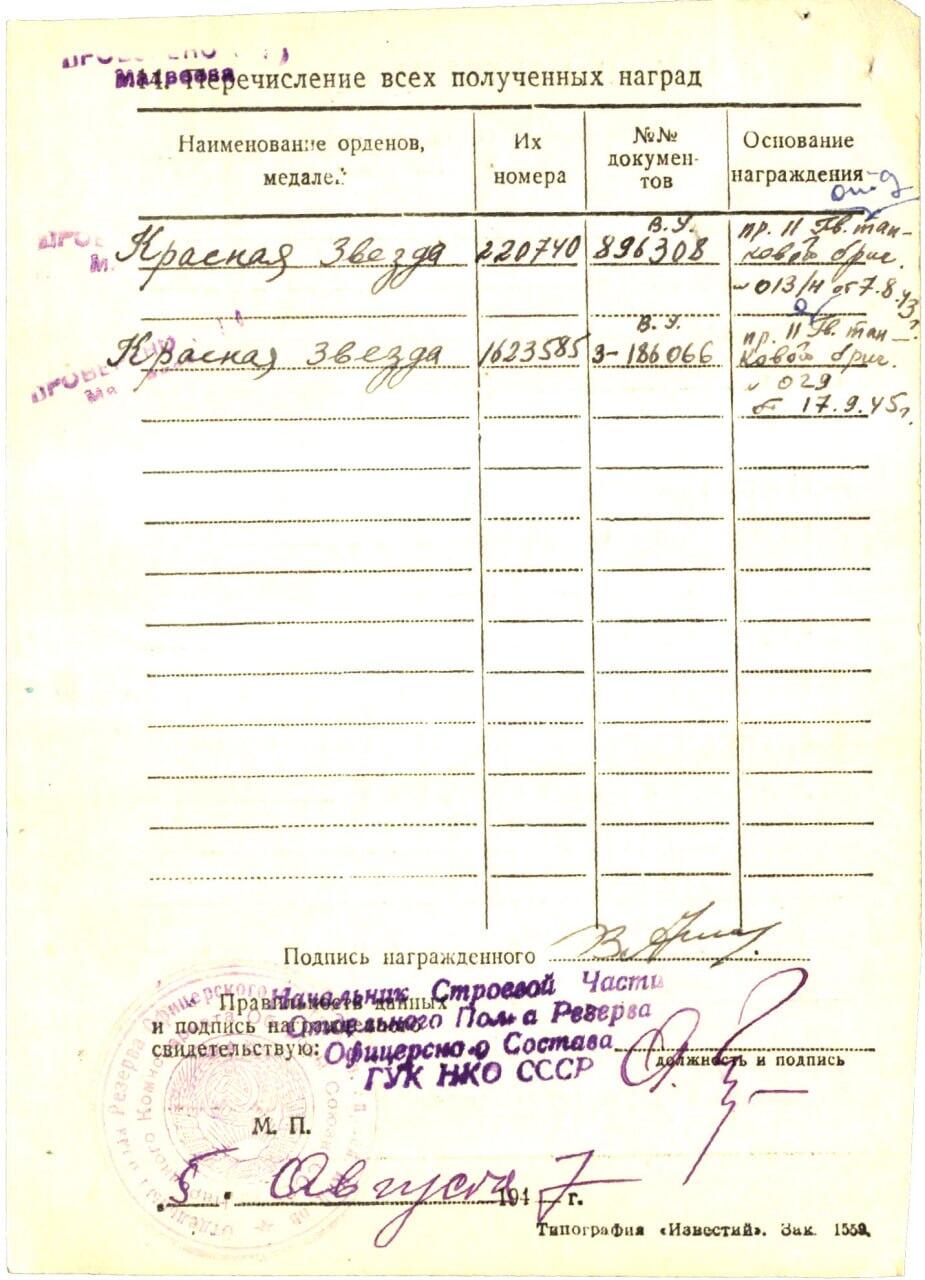 Матвеева
14. Перечисление всех полученных наград
Наименование орденов, медалей
Их номера
№№ документов
Основание награждения
Красная Звезда
220740
В.У.
896308
пр. 11 Гв. тан-
ковой бриг.
№ 013/н от 7.8.43 г
Красная Звезда
1623585
В.У.
З-186066
пр. 11 Гв. тан-
ковой бриг.
№ 029
от 17.9.45 г.
Подпись награжденного
Правильность данных
и подпись награжденного
свидетельствую:
Начальник Строевой Части
Отдельного Полка Резерва
Офицерского Состава
ГУК НКО СССР
должность и подпись
М. П.
„5“ Августа 1947 г.
Типография «Известий». Зак. 1559.